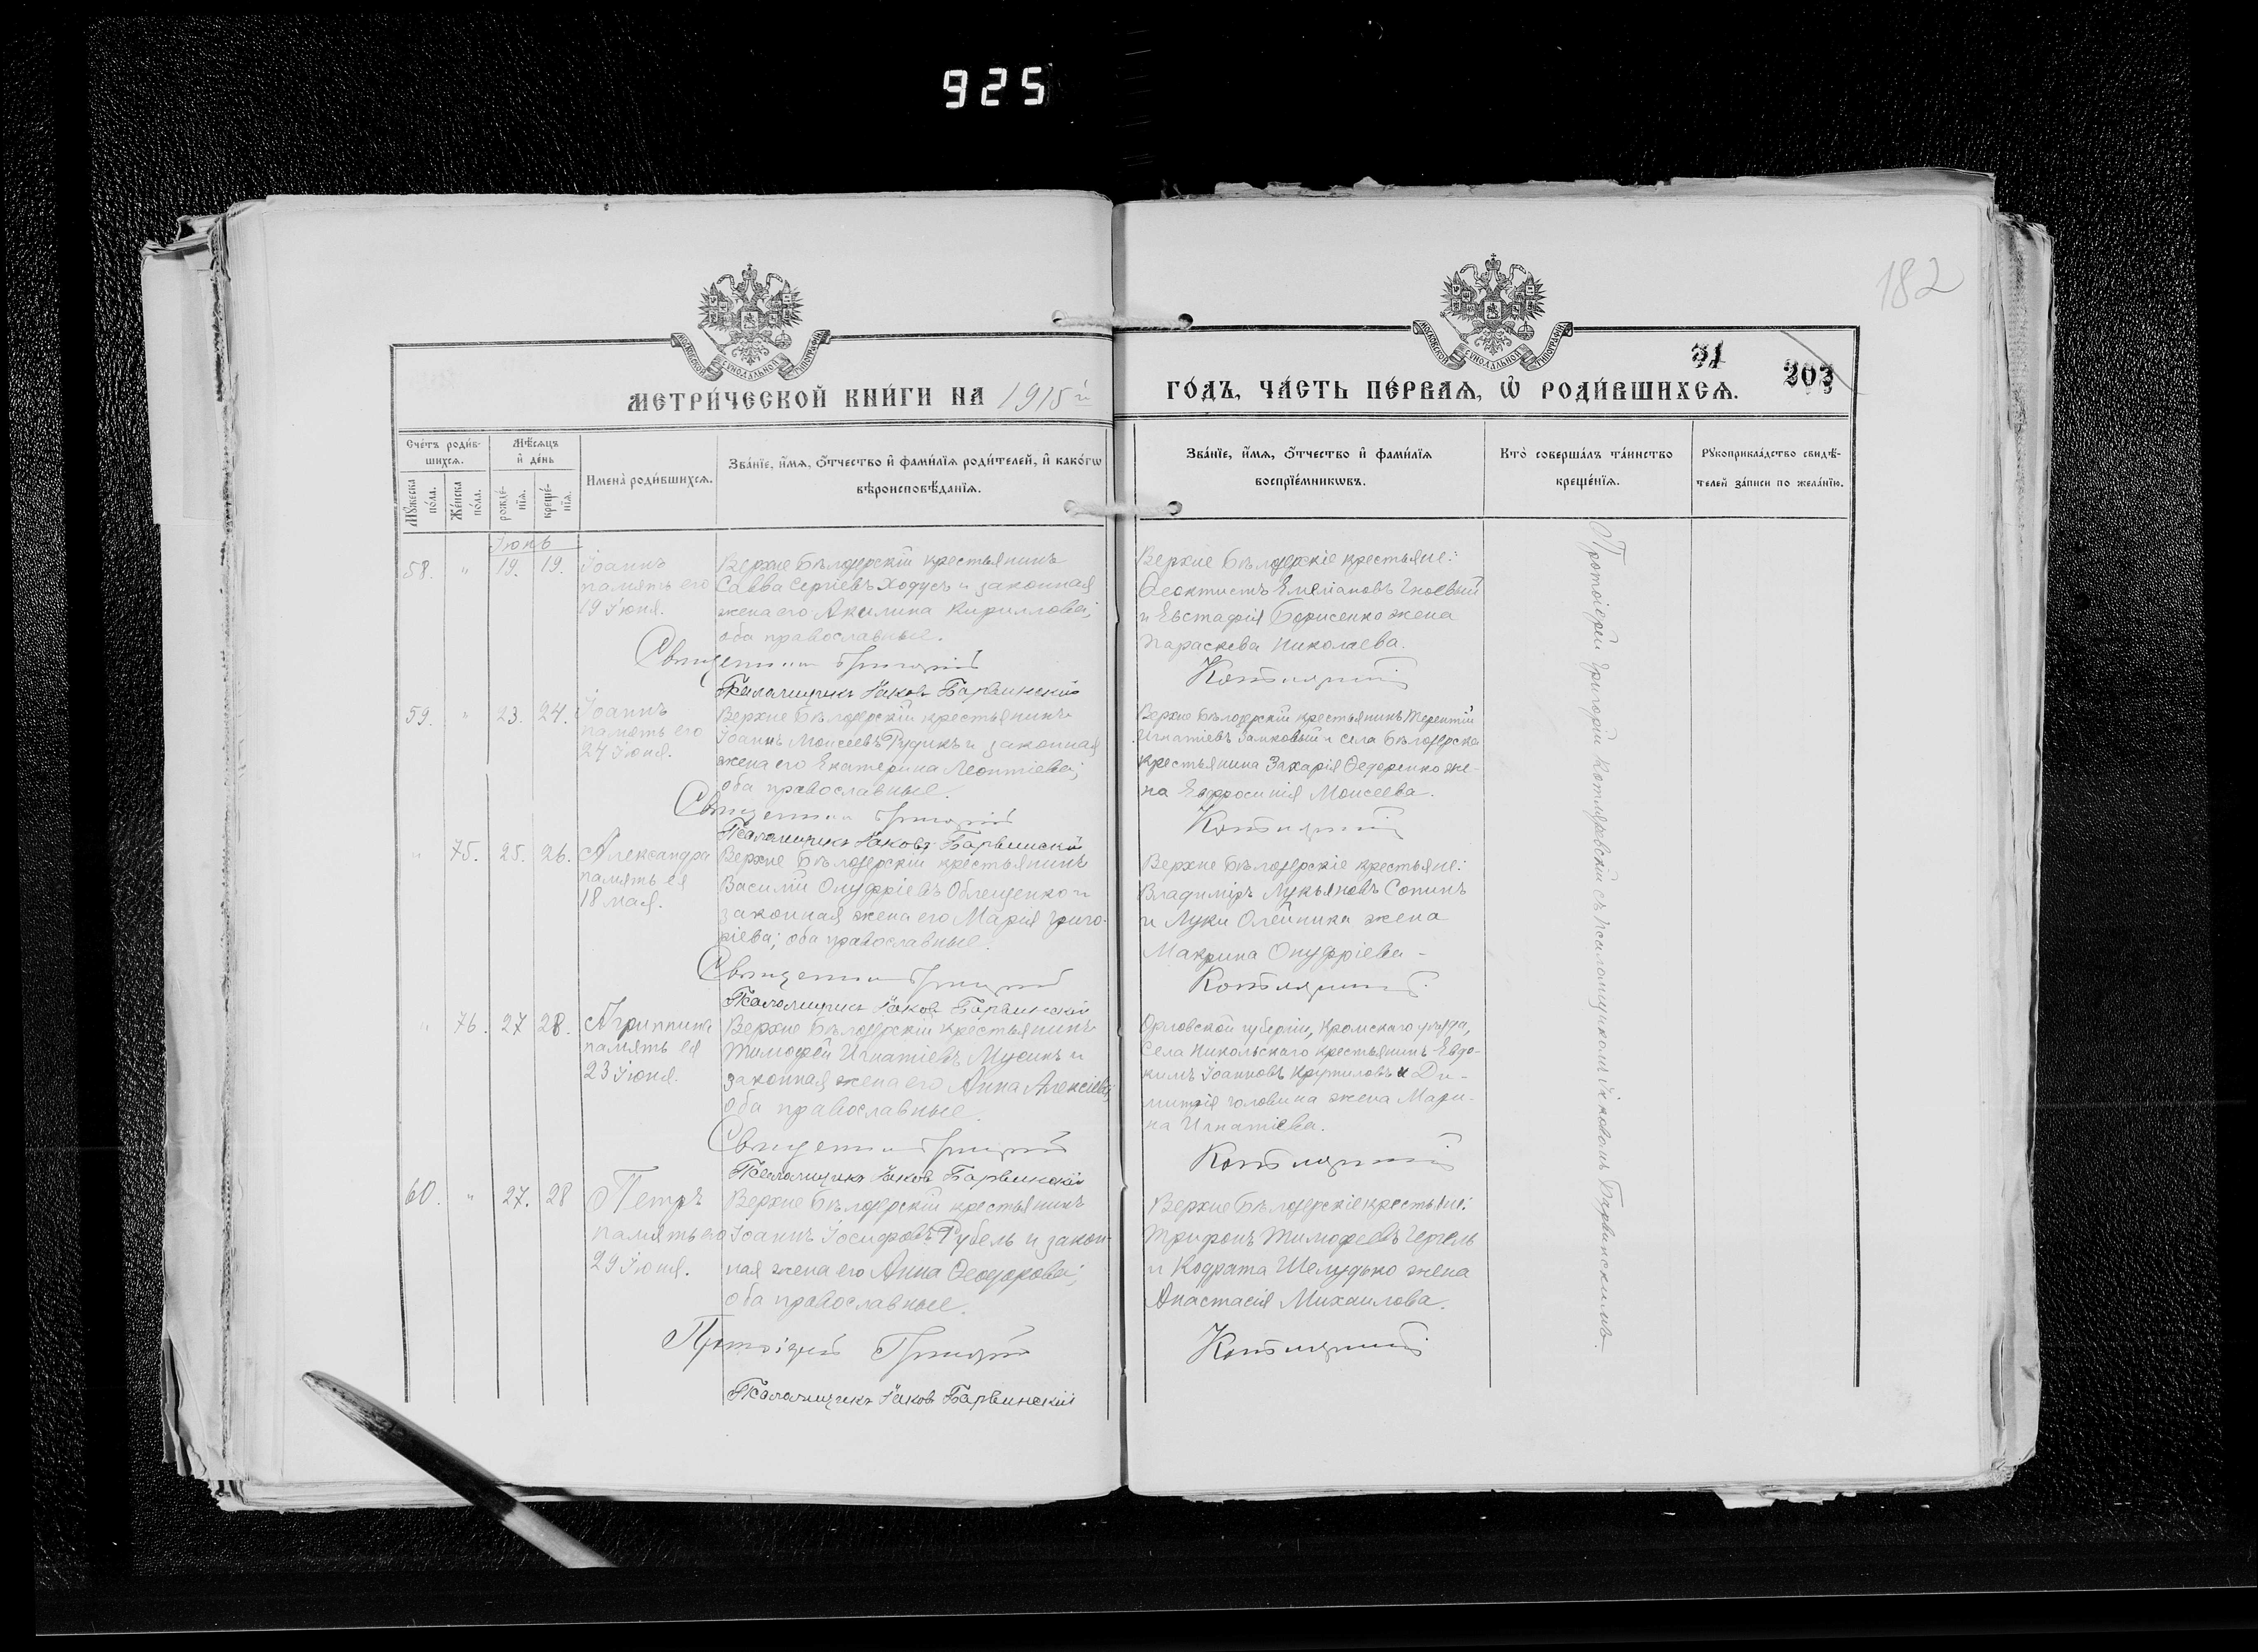 925
182
31
203
МОСКОВСКОЙ СѴНОДАЛЬНОЙ ТИПОГРАФІИ
МОСКОВСКОЙ СѴНОДАЛЬНОЙ ТИПОГРАФІИ
МЕТРИ́ЧЕСКОЙ КНИ́ГИ НА 1915й
ГО́ДЪ, ЧА́СТЬ ПЕ́РВАѦ, Ѽ РОДИ́ВШИХСѦ.
Сче́тъ роди́в-
шихсѧ.
Мꙋ́жеска по́ла.
Же́нска по́ла.
Мѣ́сѧцъ
и҆ де́нь
рожде́-
нїѧ.
креще́-
нїѧ.
И҆мена̀ роди́вшихсѧ.
Зва́нїе, и҆́мѧ, ѻ҆́тчество и҆ фами́лїѧ роди́телей, и҆ како́гѡ
вѣроисповѣ́данїѧ.
Зва́нїе, и҆́мѧ, ѻ҆́тчество и҆ фами́лїѧ
воспрїе́мникѡвъ.
Кто̀ соверша́лъ та́инство
креще́нїѧ.
Рꙋкоприкла́дство свидѣ́-
телей за́писи по жела́нїю.
Іюнь
58. " 19. 19.
Іоаннъ
память его
19 Іюня.
Верхне Бѣлозерскій крестьянинъ
Савва Сергіевъ Ходусъ и законная
жена его Акилина Кириллова;
оба православные.
Священникъ Григорій
Псаломщикъ Іаковъ Барвинскій
Верхне Бѣлозерскіе крестьяне:
Ѳеоктистъ Емеліановъ Гноевый
и Евстафія Борисенко жена
Параскева Николаева.
Котляревскій
59. " 23. 24.
Іоаннъ
память его
24 Іюня.
Верхне Бѣлозерскій крестьянинъ
Іоаннъ Моисеевъ Рудикъ и законная
жена его Екатерина Леонтіева;
оба православные.
Священникъ Григорій
Псаломщикъ Іаковъ Барвинскій
Верхне Бѣлозерскій крестьянинъ Терентій
Игнатіевъ Замковый и села Бѣлозерска
крестьянина Захарія Ѳедоренко же-
на Евфросинія Моисеева.
Котляревскій
" 75. 25. 26.
Александра
память ея
18 мая.
Верхне Бѣлозерскій крестьянинъ
Василій Онуфріевъ Облещенко и
законная жена его Марія Григо-
ріева; оба православные.
Священникъ Григорій
Псаломщикъ Іаковъ Барвинскій
Верхне Бѣлозерскіе крестьяне:
Владиміръ Лукьяновъ Сопинъ
и Луки Олейника жена
Макрина Онуфріева -
Котляревскій.
" 76. 27 28.
Агриппина
память ея
23 Іюня.
Верхне Бѣлозерскій крестьянинъ
Тимофей Игнатіевъ Мусинъ и
законная жена его Анна Алексіева;
оба православные.
Священникъ Григорій
Псаломщикъ Іаковъ Барвинскій
Орловской губерніи, Кромскаго уѣзда,
села Никольскаго крестьянинъ Евдо-
кимъ Іоанновъ и Ди-
митрія Головина жена Мари-
на Игнатіева.
Котляревскій
60. " 27. 28
Петръ
память его
29 Іюня.
Верхне Бѣлозерскій крестьянинъ
Іоаннъ Іосифовъ Рубель и закон-
ная жена его Анна Ѳеодорова;
оба православные.
Протоіерей Григорій
Псаломщикъ Іаковъ Барвинскій
Верхне Бѣлозерскіе крестьяне:
Трифонъ Тимофеевъ
и Кодрата Шелудько жена
Анастасія Михаилова.
Котляревскій
Протоіерей Григорій Котляревскій съ псаломщикомъ Іаковомъ Барвинскимъ.